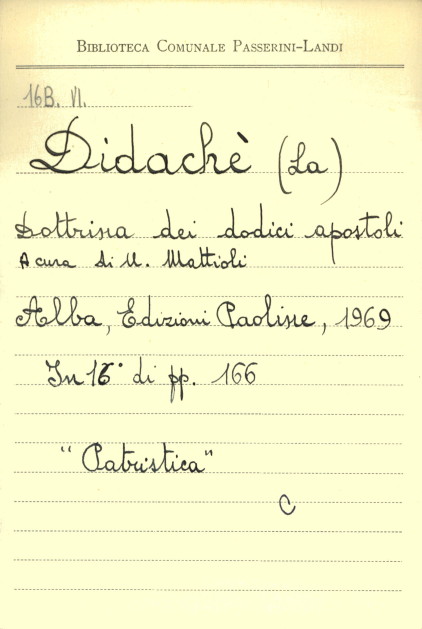 BIBLIOTECA COMUNALE PASSERINI-LANDI
16B. VI.
Didachè (La)
Dottrina dei dodici apostoli
A cura di U. Mattioli
Alba, Edizioni Paoline, 1969
In 16° di pp. 166
"Patristica"
C